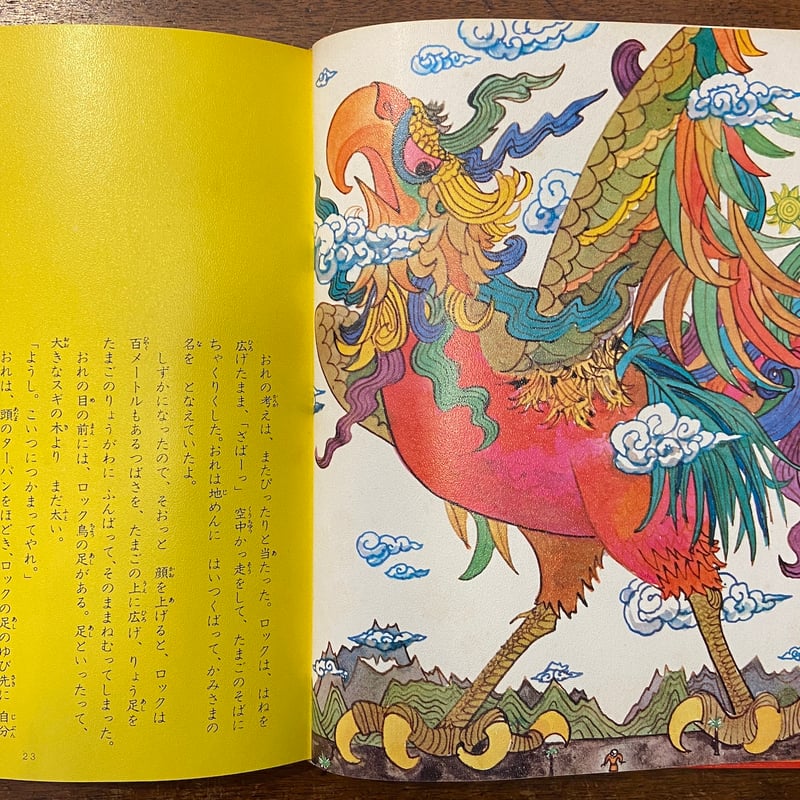 おれの考えは、またぴったりと当たった。ロックは、はねを
広げたまま、「ざばーっ」 空中かっ走をして、たまごのそばに
ちゃくりくした。おれは地めんに はいつくばって、かみさまの
名を となえていたよ。
しずかになったので、そおっと 顔を上げると、ロックは
百メートルもあるつばさを、たまごの上に広げ、りょう足を
たまごのりょうがわに ふんばって、そのままねむってしまった。
おれの目の前には、ロック鳥の足がある。足といったって、
大きなスギの木より まだ太い。
「ようし。こいつにつかまってやれ。」
おれは、頭のターバンをほどき、ロックの足のゆび先に 自分
23